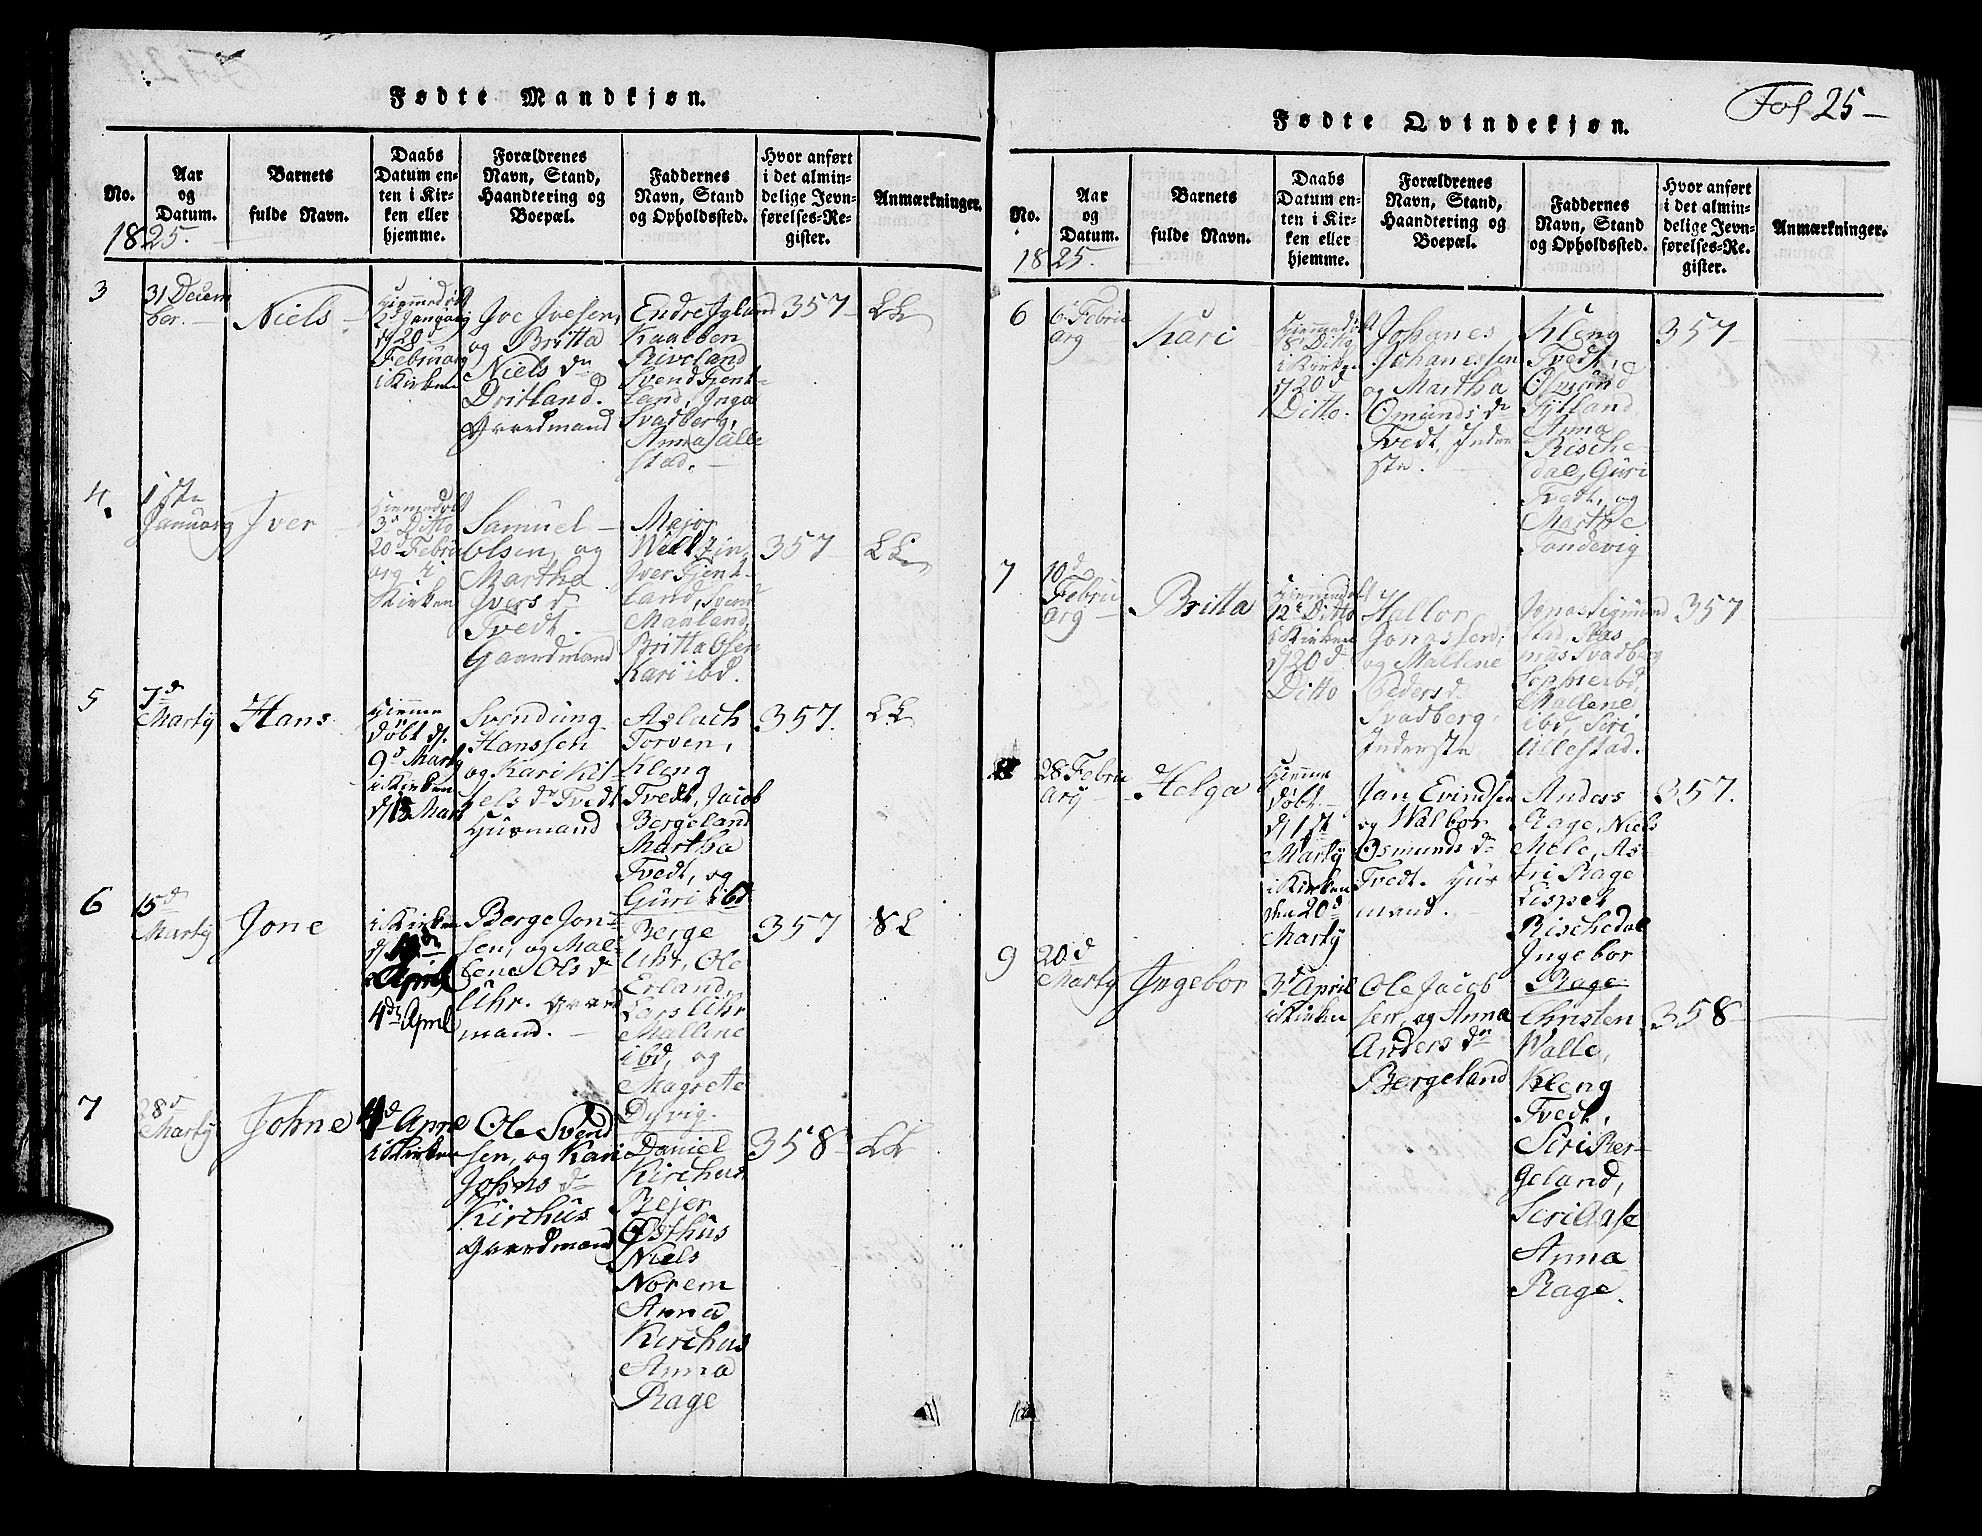 Fødte Mandkjøn.
No.
Aar
og
Datum.
Barnets
fulde Navn.
Daabs
Datum en-
ten i Kir-
ken eller
hjemme.
Forældrenes
Navn, Stand,
Haandtering og
Boepæl.
Faddernes
Navn, Stand
og Opholdssted.
Hvor anført
i det almin-
delige Jevn-
førelses-Re-
gister.
Anmærkninger.
1825.
3
31 Decem
ber.
Niels
Hiemedøbt
2d Januarij
29d
Februar
i Kirken
Ive Ivesen,
og Britta
Niels dr
Dritland.
Gaardmand
Endre
Kaalben
Riveland
Svend Fient-
land, Inga
Svadberg,
Anna Salle
stad.
357
4.
1ste
Januarij
Iver
Hiemedøbt
3d Ditto
20d Febru
arij i
Kirken
Samuel
Olsen, og
Martha
Ivers dr
Tvedt.
Gaardmand
Major
Iver Fient-
land, Svend
Manland,
Britta Osen
Kari ibd.
357
5
7d
Martij
Hans
Hiemme
døbt d.
9d Martij
i Kirken
Svendung
Hanssen
og Kari Kit-
jels dr Tvedt
Husmand
Aslach
Torven,
Kleng
Tvedt, Jacob
Bergeland
Martha
Tvedt, og
Guri ibd
357.
6
15d
Martij
Jone
i Kirken
April
4de April
Berge Jon-
sen, og Mal-
lene Ols dr
Uhr. Gaard
mand.
Berge
Uhr, Ole
Erland,
Lars Uhr
Mallene
ibd, og
Magrete
Dyvig.
357
7
28d
Martij
Johne
4d April
i Kirken
Ole Svend
sen, og Kari
Johns dr
Kirchus
Gaardmand
Daniel
Kirchus,
Rejer
Østhus
Niels
Norem
Anna
Kirchus
Anna
Rage
358
Fol 25
Fødte Qvindekjøn.
No.
Aar
og
Datum.
Barnets
fulde Navn.
Daabs
Datum en-
ten i Kir-
ken eller
hjemme.
Forældrenes
Navn, Stand,
Haandtering og
Boepæl.
Faddernes
Navn, Stand
og Opholdssted.
Hvor anført
i det almin-
delige Jevn-
førelses-Re-
gister.
Anmærkninger.
1825.
6
6 Febru
arij
Kari
Hiemedøbt
8 Ditto
i Kirken
20d
Ditto.
Johanes
Johanessen
og Martha
Osmunds dr
Tvedt, Inder
ste.
Kleng
Tvedt,
Osmund
Fytland
Anna
Rische-
dal, Guri
Tvedt, og
Marthe
Tondevig
357
7
10d
Febru
arij
Britta
Hiemedøbt
12t Ditto
i Kirken
20d
Ditto
Hallor
Jonassen,
og Mallene
Peders dr
Svadberg,
Inderste
Jonas Sigmund
stad,
Svadberg
ibd,
Mallene
ibd, Siri
Ullestad.
357
28 Febru
arij
Helga
Hiemme
døbt
d 1ste
Martij
i Kirken
den 20d
Martij
Jan Evindsen
og Walbor
Osmunds dr
Tvedt. Hus
mand.
Anders
Rage, Niels
Mele, As-
tri Rage
Lispet
Rischedal
Ingebor
Rage
357.
9
20d
Martij
Ingebor
3d April
i Kirken
Ole Jacob
sen, og Anna
Anders dr
Bergeland
Christen
Walle,
Kleng
Tvedt,
Siri Ber-
geland,
Siri Aase
Anna
Rage.
358